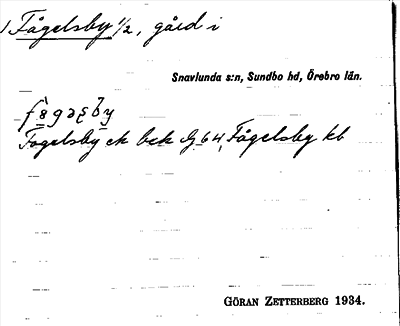 Fågelsby 1/2, gård i
Snavlunda s:n, Sundbo hd, Örebro län.
Fogelsby ek bek Gg 64, Fågelsby kb
GÖRAN ZETTERBERG 1934.